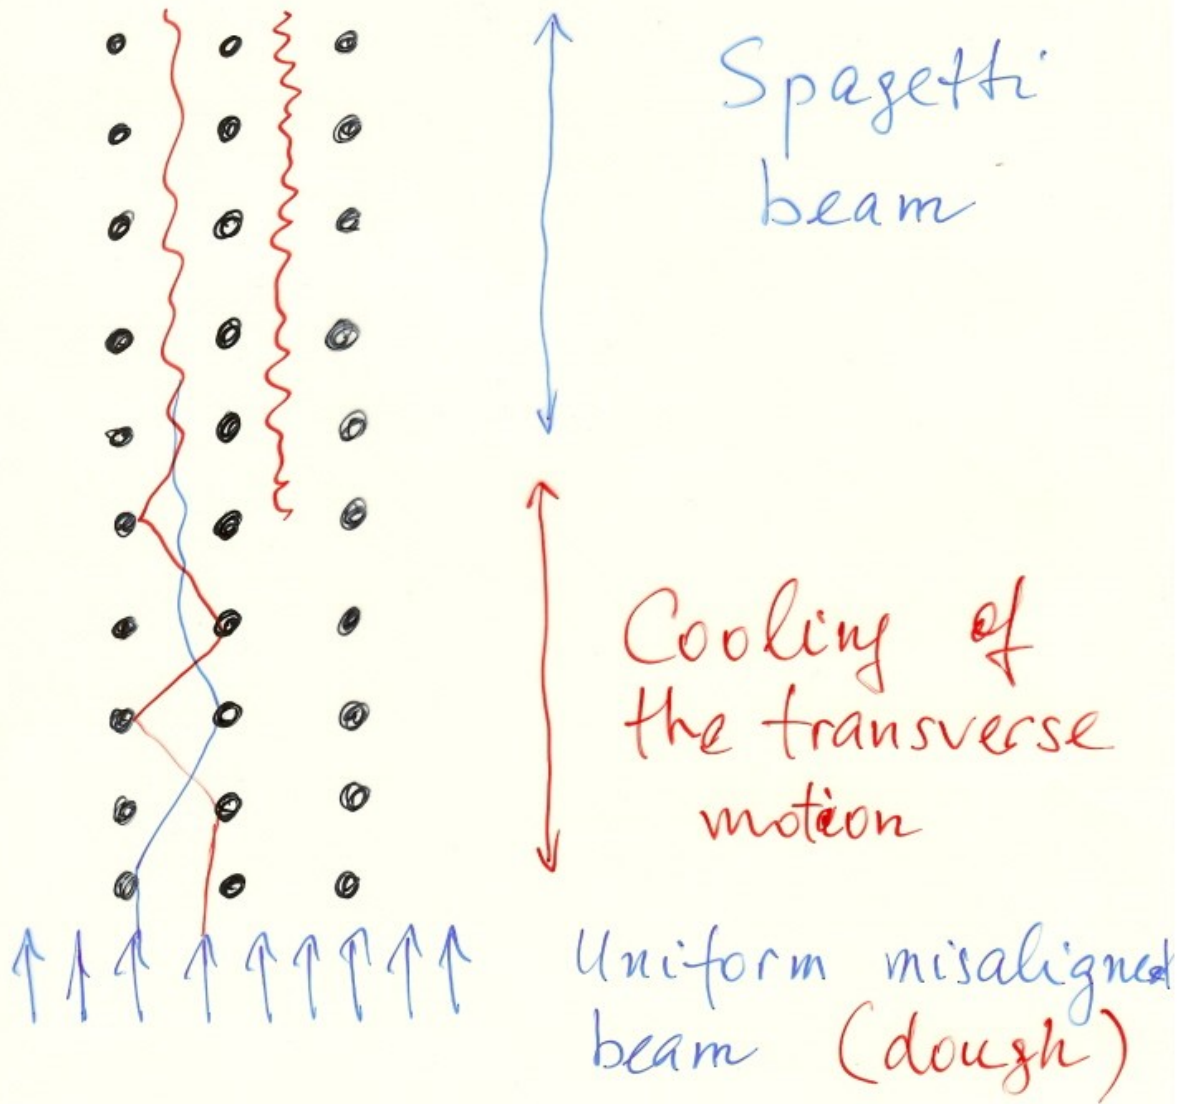 Spagetti
beam
Cooling of
the transverse
motion
Uniform misaligned
beam (dough)